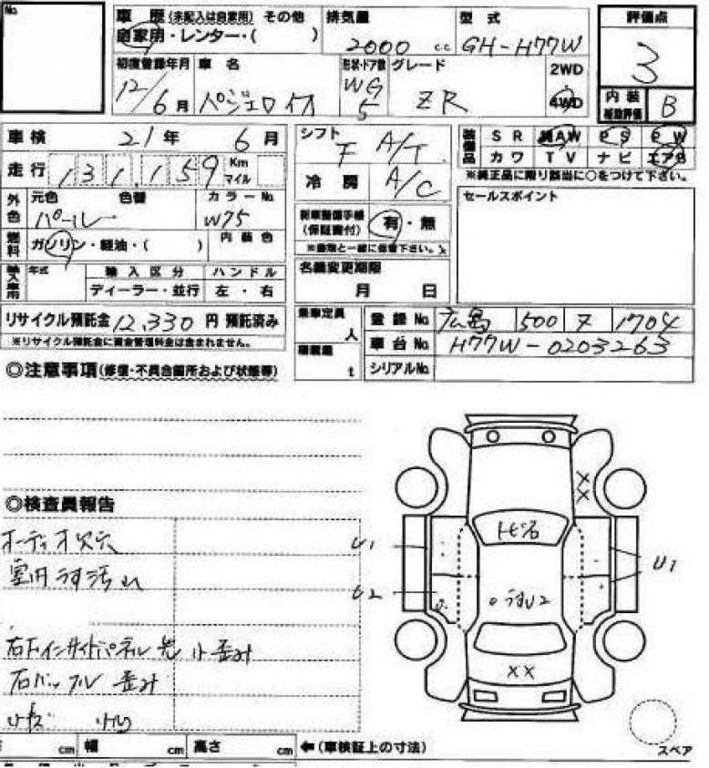 No.
車歴 (未記入は自家用) その他
自家用・レンター・( )
排気量
2000 cc
型式
GH-H77W
評価点
3
初度登録年月
12/6月
車名
パジェロイオ
形状・ドア数
WG
5
グレード
ZR
2WD
4WD
内装
補助評価
B
車検 21年 6月
シフト
F A/T
装備品
SR AW PS PW
カワ TV ナビ エアB
※純正品に限り該当に○をつけて下さい。
走行 131,159 Km
マイル
冷房 A/C
外色
元色 色替
パール
カラーNo.
W75
セールスポイント
新車整備手帳
(保証書付)
有・無
※書類と一緒に保管下さい。
燃料
ガソリン・軽油・( )
内装色
輸入車用
年式
輸入区分
ディーラー・並行
ハンドル
左・右
名義変更期限
月 日
リサイクル預託金 12,330 円 預託済み
※リサイクル預託金に資金管理料金は含まれません。
乗車定員
人
積載量
t
登録No. 広島 500 7 1704
車台No. H77W-0203263
シリアルNo.
◎注意事項(修復・不具合箇所および状態等)
◎検査員報告
オーディオ欠穴
室内うす汚れ
右下インサイドパネル先 小歪み
右バッフル 歪み
小キズ 小凹
トビ石
U1
U2
うすU2
U1
XX
XX
cm 幅 cm 高さ cm ←(車検証上の寸法)
スペア